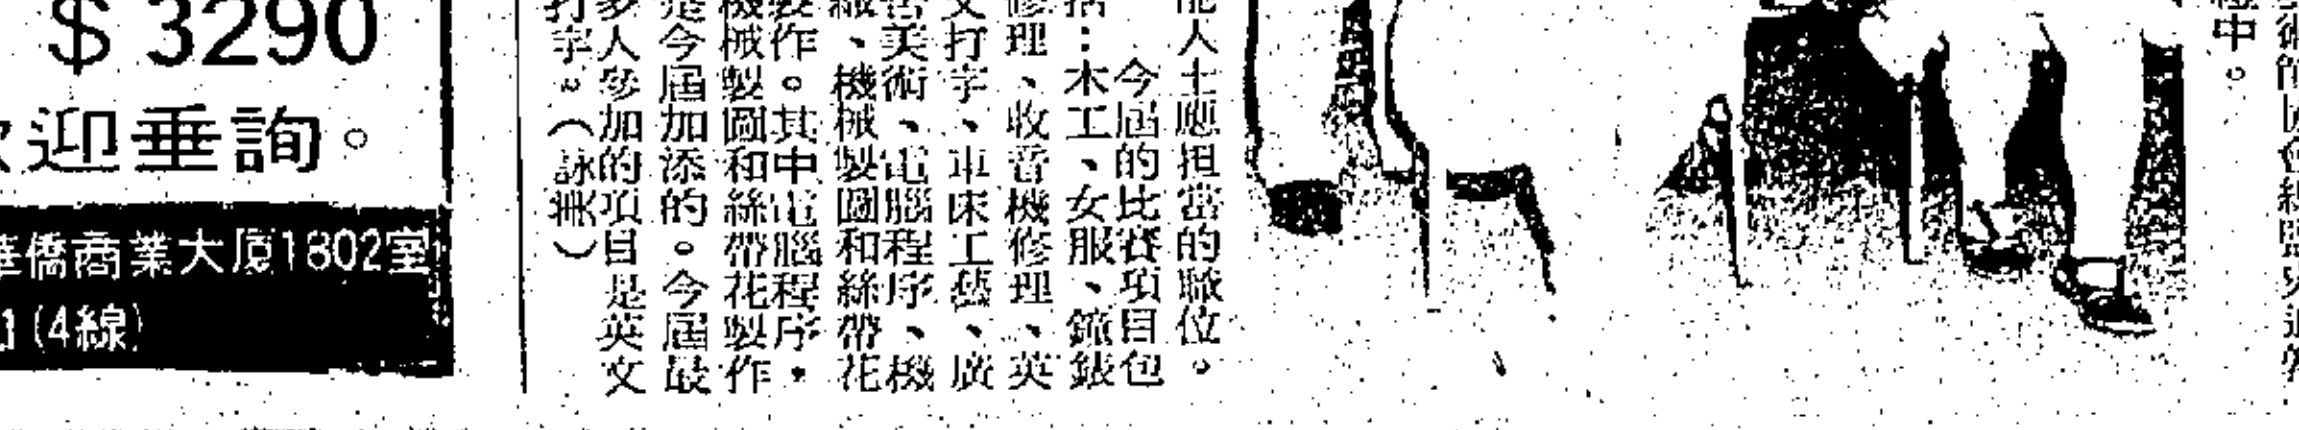 $3290
迎垂詢。
華僑商業大厦1802室
(4線)
中。
能人士應担當的職位。
今屆的比賽項目包
括：木工、女服、鐘錶
修理、收音機修理、英
文打字、車床工藝、廣
告美術、電腦程序、機
織、機械製圖和絲帶花
製作。其中電腦程序，
機械製圖和絲帶花製作
是今屆加添的。今屆最
多人參加的項目是英文
打字。（詠無）